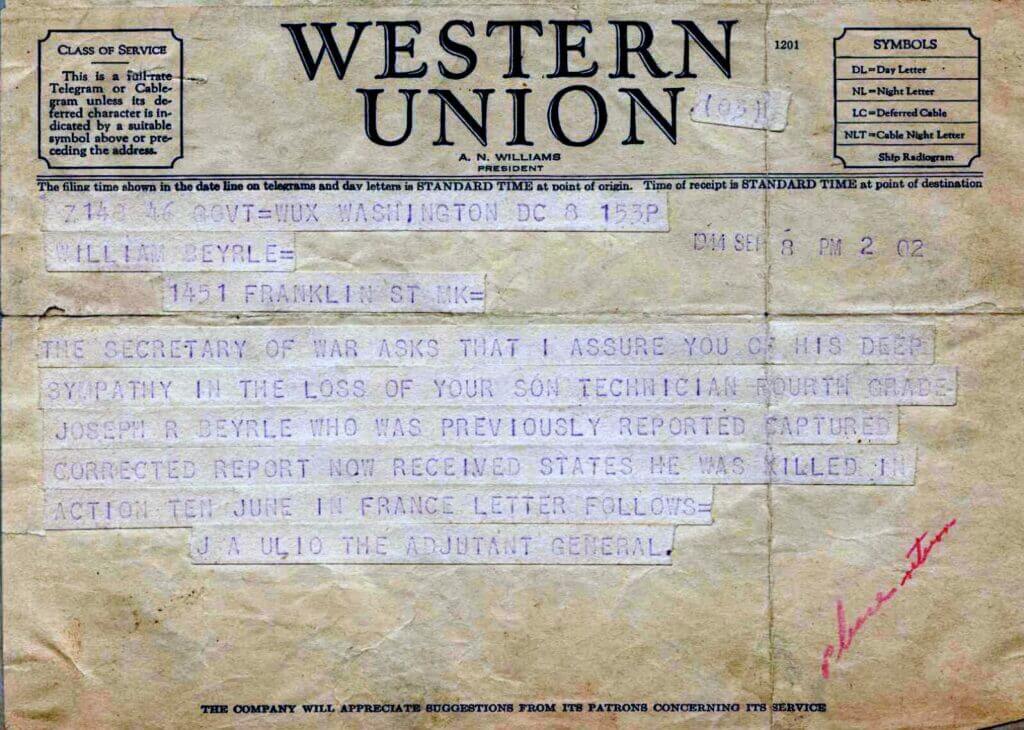 CLASS OF SERVICE
This is a full-rate
Telegram or Cable-
gram unless its de-
ferred character is in-
dicated by a suitable
symbol above or pre-
ceding the address.
WESTERN
UNION
A. N. WILLIAMS
PRESIDENT
1201
(03)
SYMBOLS
DL=Day Letter
NL=Night Letter
LC=Deferred Cable
NLT=Cable Night Letter
Ship Radiogram
The filing time shown in the date line on telegrams and day letters is STANDARD TIME at point of origin. Time of receipt is STANDARD TIME at point of destination
Z148 46 GOVT=WUX WASHINGTON DC 8 153P
WILLIAM BEYRLE=
1944 SEP 8 PM 2 02
1451 FRANKLIN ST MK=
THE SECRETARY OF WAR ASKS THAT I ASSURE YOU OF HIS DEEP
SYMPATHY IN THE LOSS OF YOUR SON TECHNICIAN FOURTH GRADE
JOSEPH R BEYRLE WHO WAS PREVIOUSLY REPORTED CAPTURED
CORRECTED REPORT NOW RECEIVED STATES HE WAS KILLED IN
ACTION TEN JUNE IN FRANCE LETTER FOLLOWS=
J A ULIO THE ADJUTANT GENERAL.
please return
THE COMPANY WILL APPRECIATE SUGGESTIONS FROM ITS PATRONS CONCERNING ITS SERVICE